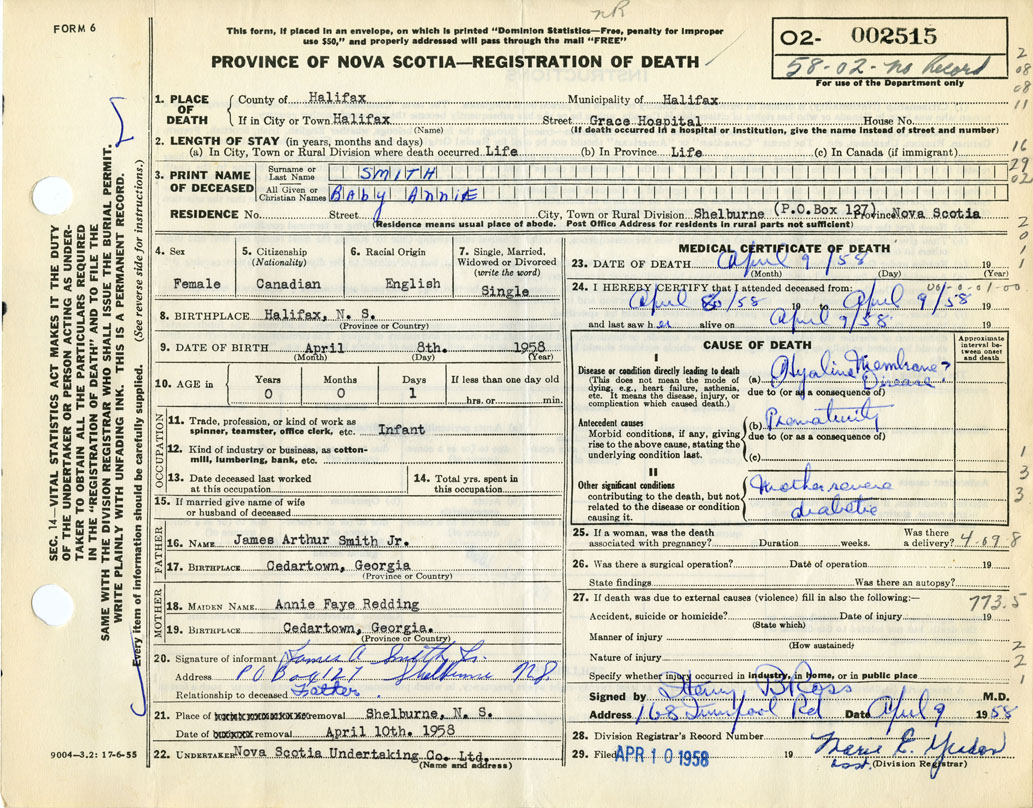 nR
FORM 6
This form, if placed in an envelope, on which is printed "Dominion Statistics—Free, penalty for improper
use $50," and properly addressed will pass through the mail "FREE"
PROVINCE OF NOVA SCOTIA—REGISTRATION OF DEATH
O2- 002515
58-02-no Record
For use of the Department only
2
08
08
11
16
29
02
2
0
1
SEC. 14—VITAL STATISTICS ACT MAKES IT THE DUTY
OF THE UNDERTAKER OR PERSON ACTING AS UNDER-
TAKER TO OBTAIN ALL THE PARTICULARS REQUIRED
IN THE "REGISTRATION OF DEATH" AND TO FILE THE
SAME WITH THE DIVISION REGISTRAR WHO SHALL ISSUE THE BURIAL PERMIT.
WRITE PLAINLY WITH UNFADING INK. THIS IS A PERMANENT RECORD.
Every item of information should be carefully supplied. (See reverse side for instructions.)
1. PLACE OF DEATH
County of Halifax Municipality of Halifax
If in City or Town Halifax Street Grace Hospital House No.
(Name) (If death occurred in a hospital or institution, give the name instead of street and number)
2. LENGTH OF STAY (in years, months and days)
(a) In City, Town or Rural Division where death occurred Life (b) In Province Life (c) In Canada (if immigrant)
3. PRINT NAME OF DECEASED
Surname or Last Name SMITH
All Given or Christian Names BABY ANNIE
RESIDENCE No. Street City, Town or Rural Division Shelburne (P.O.Box 127) Province Nova Scotia
(Residence means usual place of abode. Post Office Address for residents in rural parts not sufficient)
4. Sex
Female
5. Citizenship
(Nationality)
Canadian
6. Racial Origin
English
7. Single, Married,
Widowed or Divorced
(write the word)
Single
8. BIRTHPLACE Halifax, N. S.
(Province or Country)
9. DATE OF BIRTH April 8th. 1958
(Month) (Day) (Year)
10. AGE in
Years Months Days If less than one day old
0 0 1 hrs. or min.
OCCUPATION
11. Trade, profession, or kind of work as
spinner, teamster, office clerk, etc. Infant
12. Kind of industry or business, as cotton-
mill, lumbering, bank, etc.
13. Date deceased last worked
at this occupation
14. Total yrs. spent in
this occupation
15. If married give name of wife
or husband of deceased
FATHER
16. NAME James Arthur Smith Jr.
17. BIRTHPLACE Cedartown, Georgia
(Province or Country)
MOTHER
18. MAIDEN NAME Annie Faye Redding
19. BIRTHPLACE Cedartown, Georgia.
(Province or Country)
20. Signature of informant James A Smith Jr.
Address PO Box 127 Shelburne NS.
Relationship to deceased Father.
21. Place of removal Shelburne, N. S.
Date of removal April 10th. 1958
22. UNDERTAKER Nova Scotia Undertaking Co. Ltd.
(Name and address)
9004—3.2: 17-6-55
MEDICAL CERTIFICATE OF DEATH
23. DATE OF DEATH April 9/58 19
(Month) (Day) (Year)
24. I HEREBY CERTIFY that I attended deceased from: 00-0-01-00
April 8/58 19 to April 9/58 19
and last saw her alive on April 9/58 19
CAUSE OF DEATH
Approximate
interval be-
tween onset
and death
I
Disease or condition directly leading to death
(This does not mean the mode of
dying, e.g., heart failure, asthenia,
etc. It means the disease, injury, or
complication which caused death.)
(a) Hyaline Membrane?
Disease.
due to (or as a consequence of)
Antecedent causes
Morbid conditions, if any, giving
rise to the above cause, stating the
underlying condition last.
(b) Prematurity
due to (or as a consequence of)
(c)
II
Other significant conditions
contributing to the death, but not
related to the disease or condition
causing it.
Mother severe
diabetic
1
3
3
25. If a woman, was the death
associated with pregnancy? Duration weeks.
Was there
a delivery?
4-09.8
26. Was there a surgical operation? Date of operation 19
State findings Was there an autopsy?
27. If death was due to external causes (violence) fill in also the following:—
773.5
Accident, suicide or homicide? Date of injury 19
(State which)
Manner of injury
(How sustained)
Nature of injury
2
2
1
Specify whether injury occurred in industry, in home, or in public place
Signed by Henry B Ross M.D.
Address 168 Rd Date April 9 1958
28. Division Registrar's Record Number
29. Filed APR 10 1958 19 Marie E.
asst. (Division Registrar)